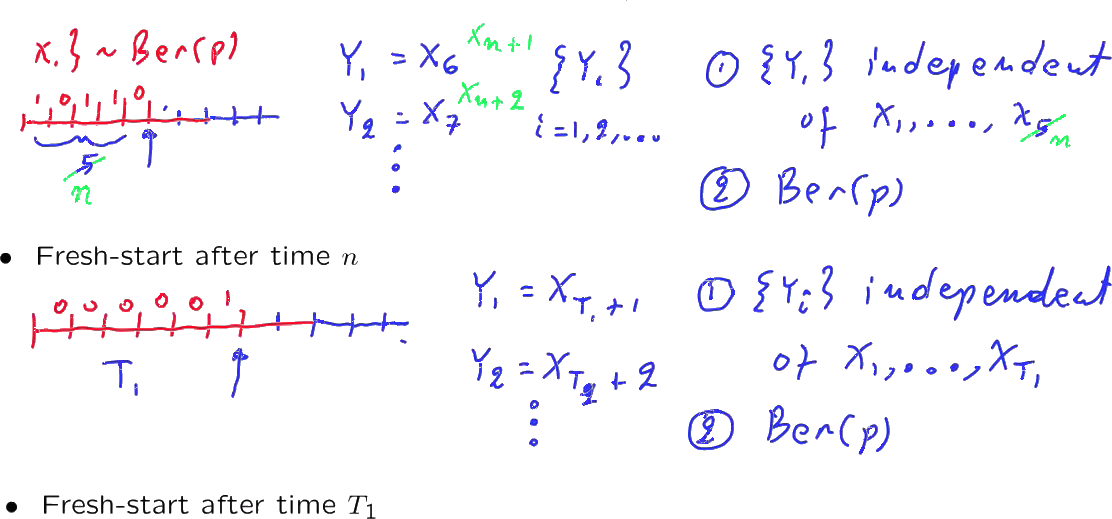 X.} ~ Ber(p)
1 0 1 1 0
5 n
Y₁ = X₆ Xₙ₊₁ {Yᵢ}
Y₂ = X₇ Xₙ₊₂ i=1,2,...
① {Yᵢ} independent
of X₁,..., X₅ n
② Ber(p)
• Fresh-start after time n
0 0 0 0 0 1
T₁
Y₁ = X_{T₁+1}
Y₂ = X_{T₂+2}
① {Yᵢ} independent
of X₁,...,X_{T₁}
② Ber(p)
• Fresh-start after time T₁